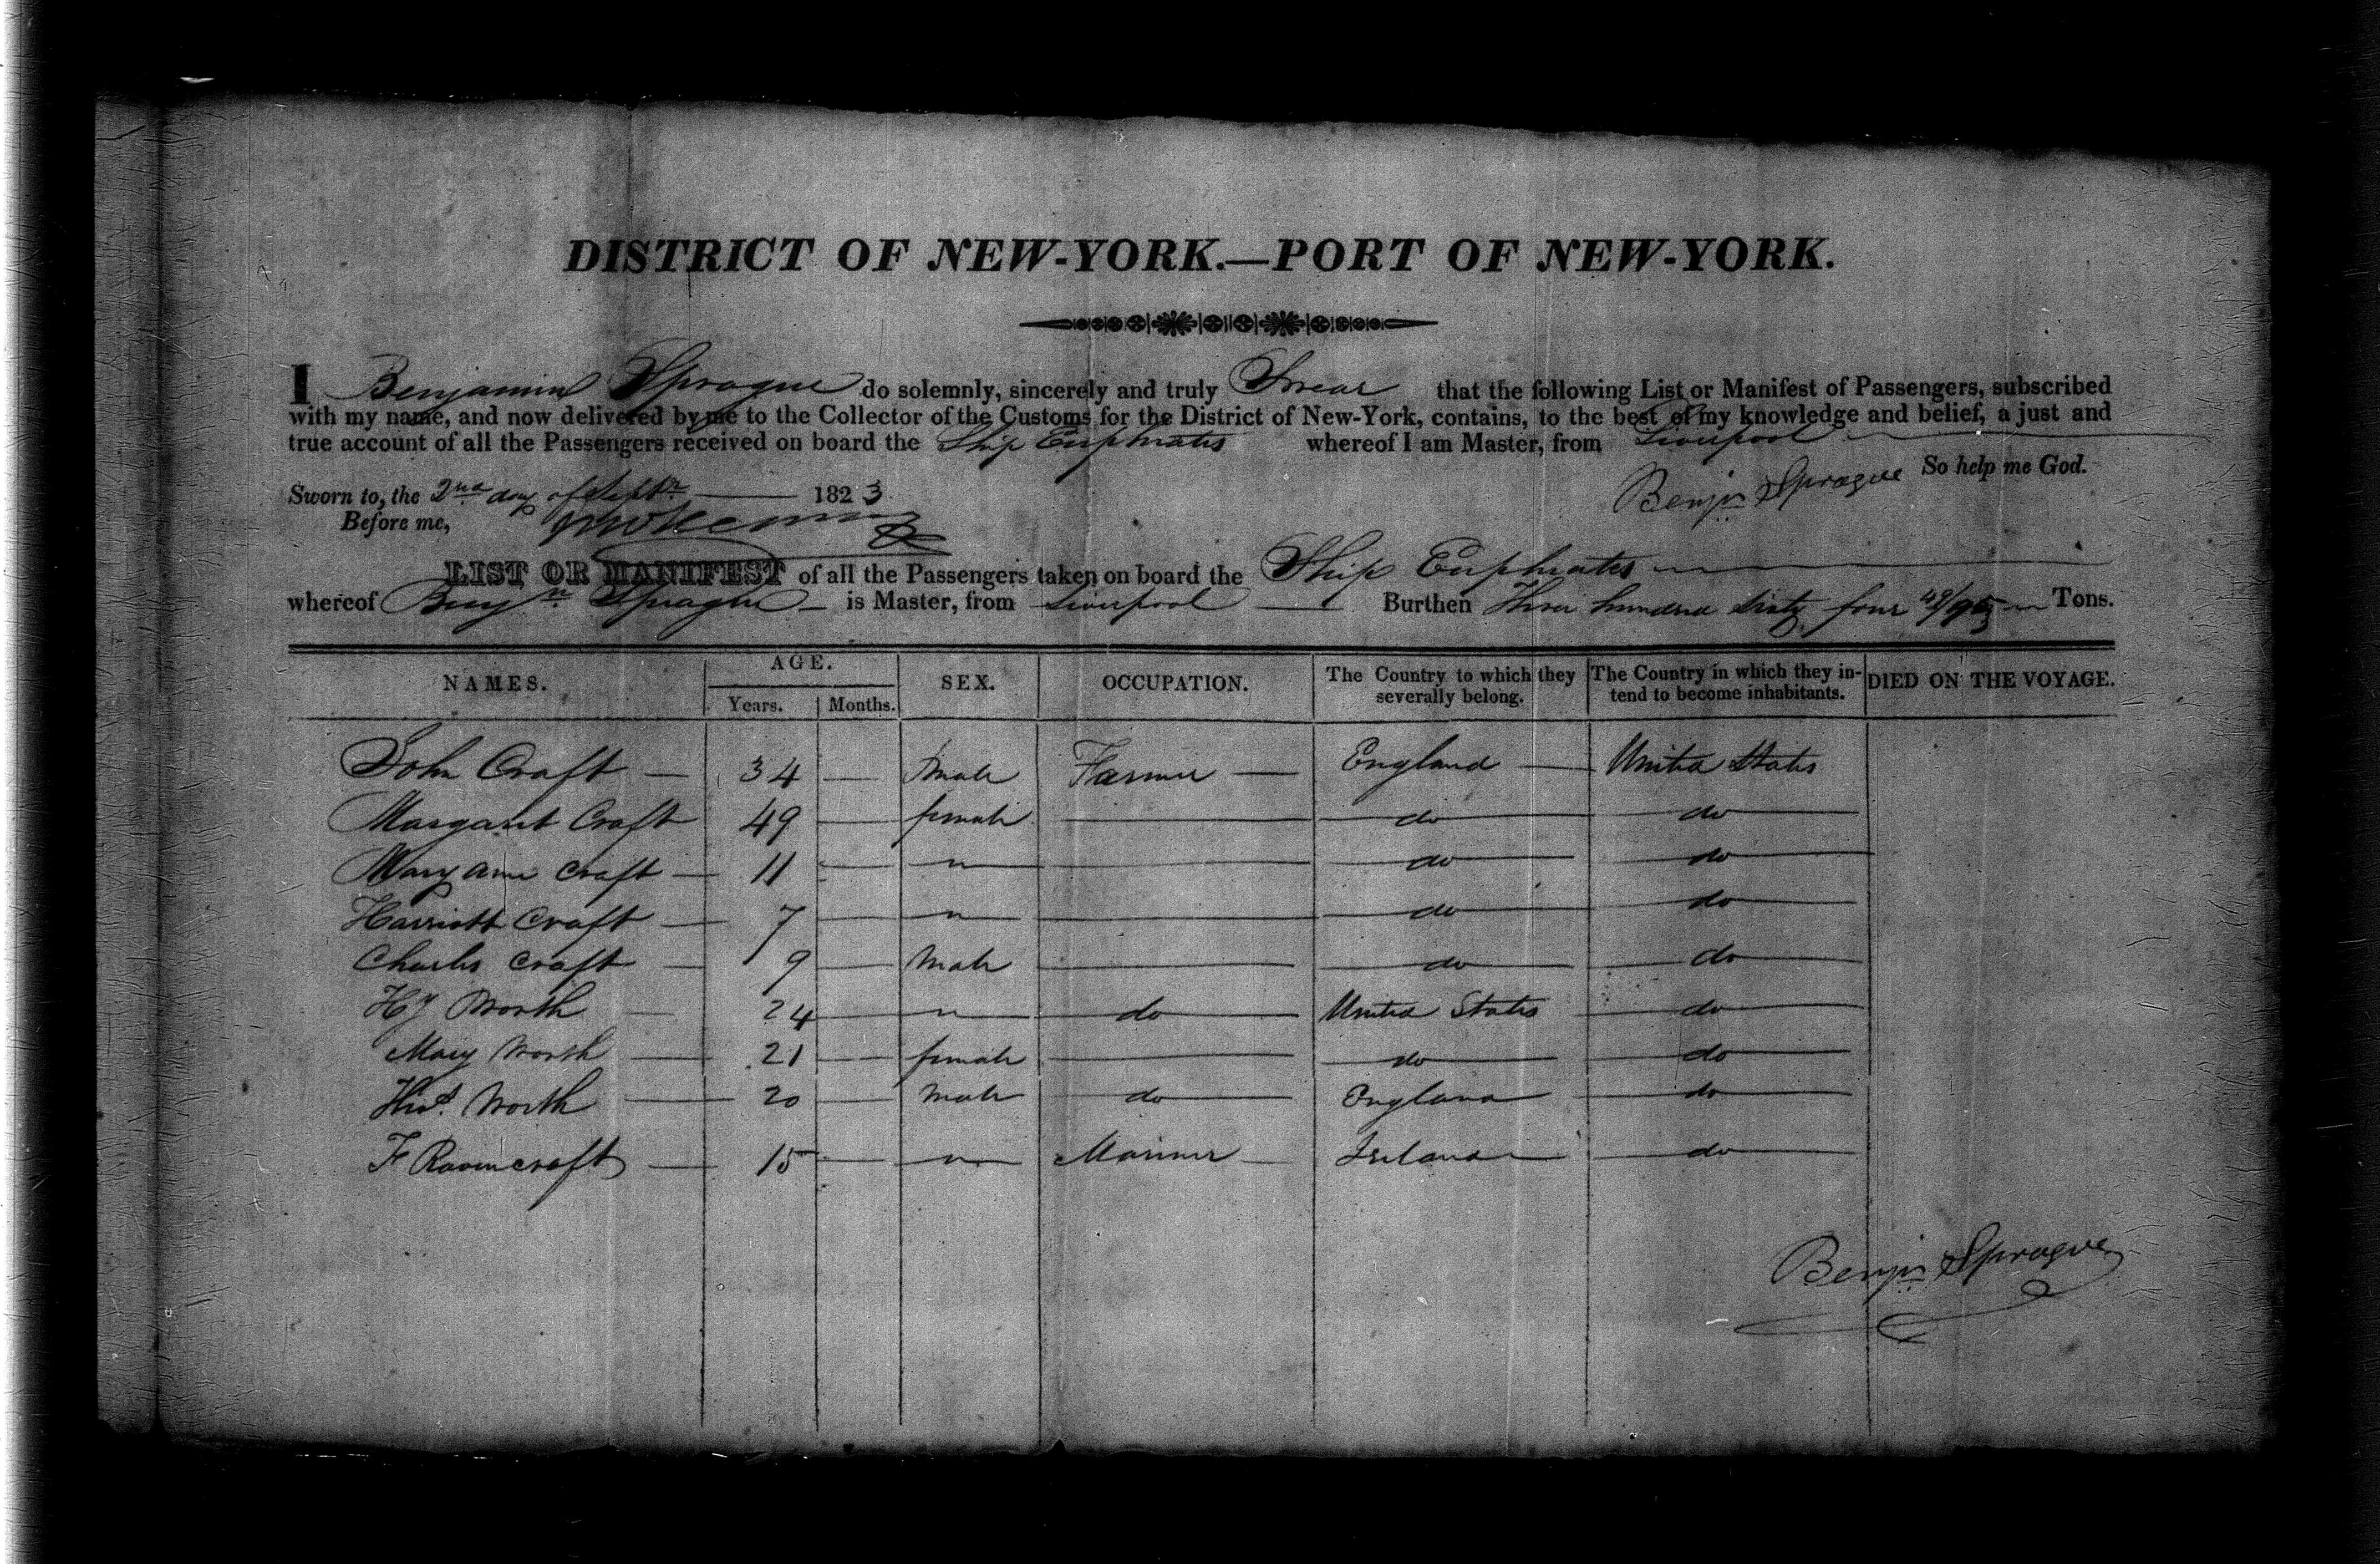 DISTRICT OF NEW-YORK.—PORT OF NEW-YORK.
I Benjamin Sprague do solemnly, sincerely and truly Swear that the following List or Manifest of Passengers, subscribed
with my name, and now delivered by me to the Collector of the Customs for the District of New-York, contains, to the best of my knowledge and belief, a just and
true account of all the Passengers received on board the Ship Euphrates whereof I am Master, from Liverpool
So help me God.
Sworn to, the 2nd day of Septr 1823 Benjn Sprague
Before me,
LIST OR MANIFEST of all the Passengers taken on board the Ship Euphrates
whereof Benjn Sprague is Master, from Liverpool Burthen Three hundred Sixty four 49/95 Tons.
NAMES. AGE. SEX. OCCUPATION. The Country to which they severally belong. The Country in which they intend to become inhabitants. DIED ON THE VOYAGE.
Years. Months.
John Craft — 34 — male Farmer — England — United States
Margaret Craft 49 — female — do — do
Mary Ann Craft — 11 — " — do — do
Harriott Craft — 7 — " — do — do
Charles Craft — 9 — male — do — do
Hy Worth — 24 — " — do — United States — do
Mary Worth — 21 — female — do — do
Thos. Worth — 20 — male — do — England — do
F Ravencraft — 15 — " — Mariner — Ireland — do
Benjn Sprague